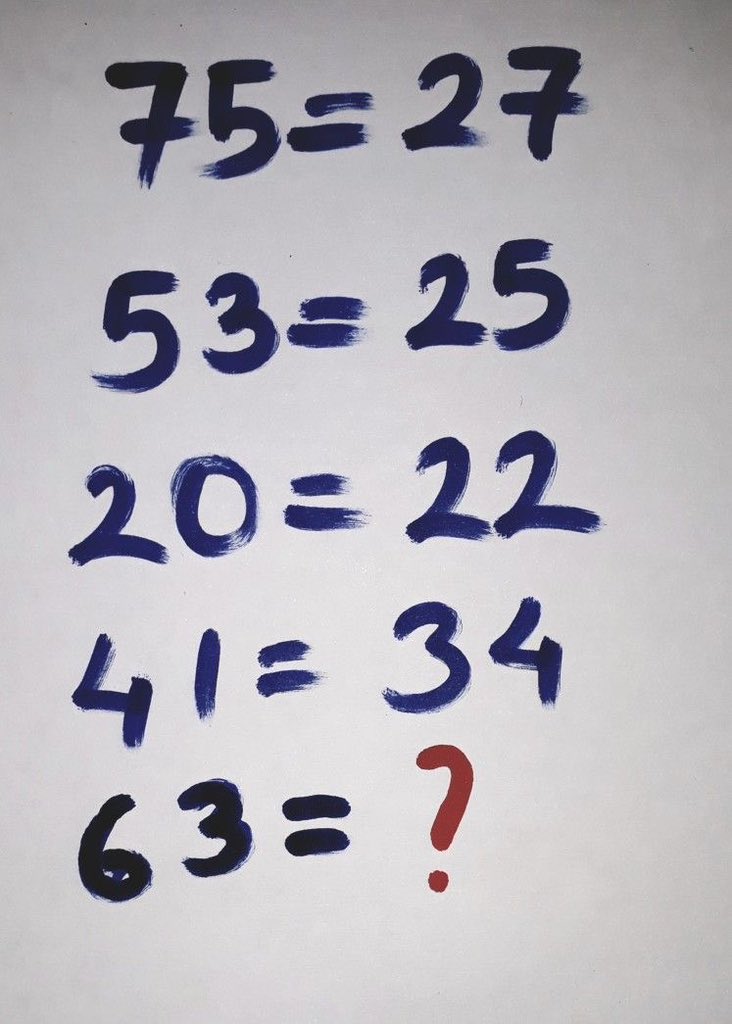 75=27
53=25
20=22
41=34
63=?